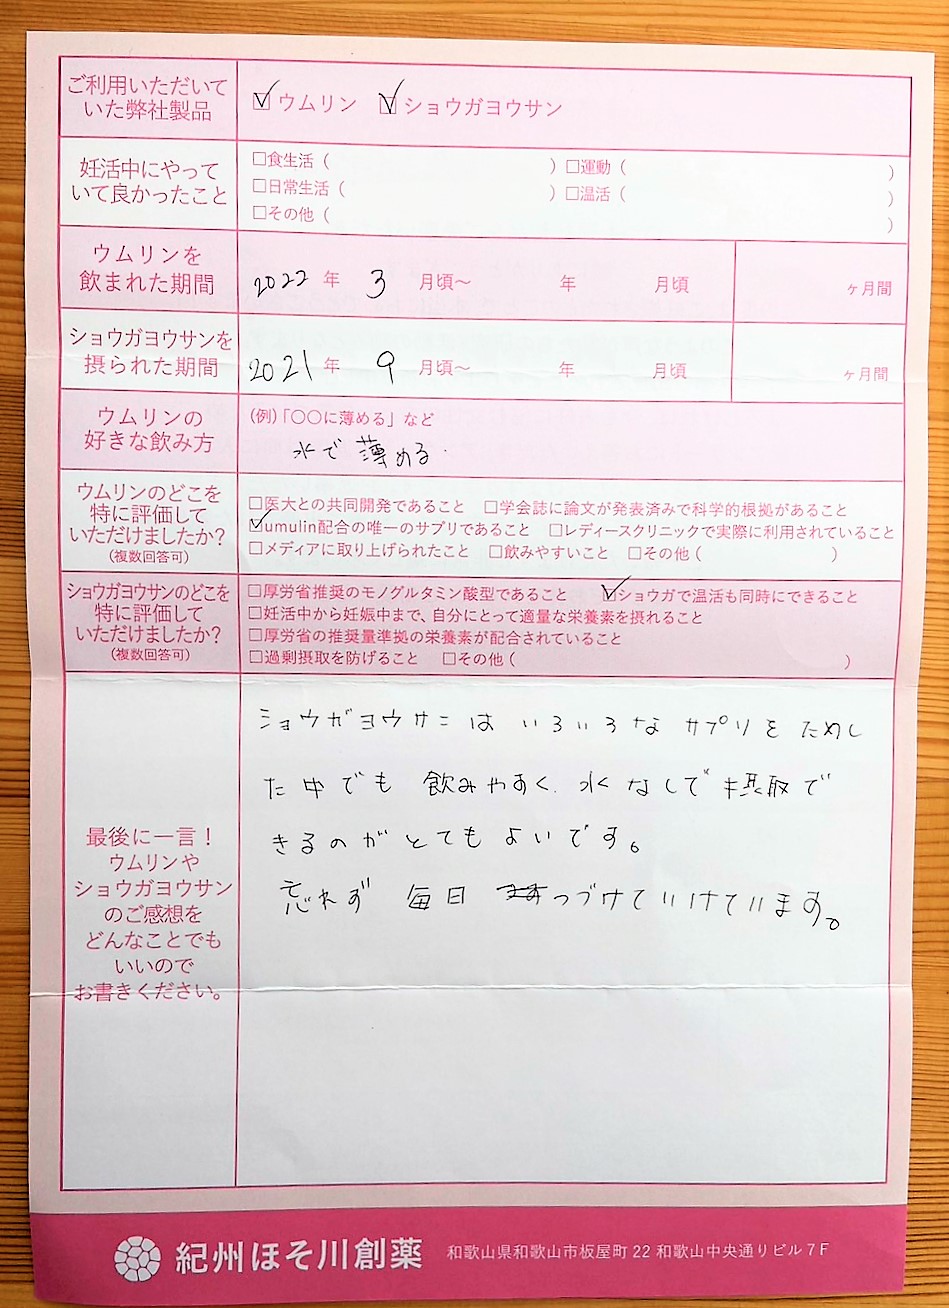 ご利用いただいて
いた弊社製品
☑ウムリン ☑ショウガヨウサン
妊活中にやって
いて良かったこと
□食生活（ ）□運動（ ）
□日常生活（ ）□温活（ ）
□その他（ ）
ウムリンを
飲まれた期間
2022年 3月頃〜 年 月頃 ヶ月間
ショウガヨウサンを
摂られた期間
2021年 9月頃〜 年 月頃 ヶ月間
ウムリンの
好きな飲み方
(例)「〇〇に薄める」など
水で薄める.
ウムリンのどこを
特に評価して
いただけましたか？
(複数回答可)
□医大との共同開発であること □学会誌に論文が発表済みで科学的根拠があること
☑umulin配合の唯一のサプリであること □レディースクリニックで実際に利用されていること
□メディアに取り上げられたこと □飲みやすいこと □その他（ ）
ショウガヨウサンのどこを
特に評価して
いただけましたか？
(複数回答可)
□厚労省推奨のモノグルタミン酸型であること ☑ショウガで温活も同時にできること
□妊活中から妊娠中まで、自分にとって適量な栄養素を摂れること
□厚労省の推奨量準拠の栄養素が配合されていること
□過剰摂取を防げること □その他（ ）
最後に一言！
ウムリンや
ショウガヨウサン
のご感想を
どんなことでも
いいので
お書きください。
ショウガヨウサンは いろいろなサプリをためし
た中でも 飲みやすく、水なしで摂取で
きるのがとてもよいです。
忘れず 毎日 つづけていけています。
紀州ほそ川創薬 和歌山県和歌山市板屋町22 和歌山中央通りビル7F